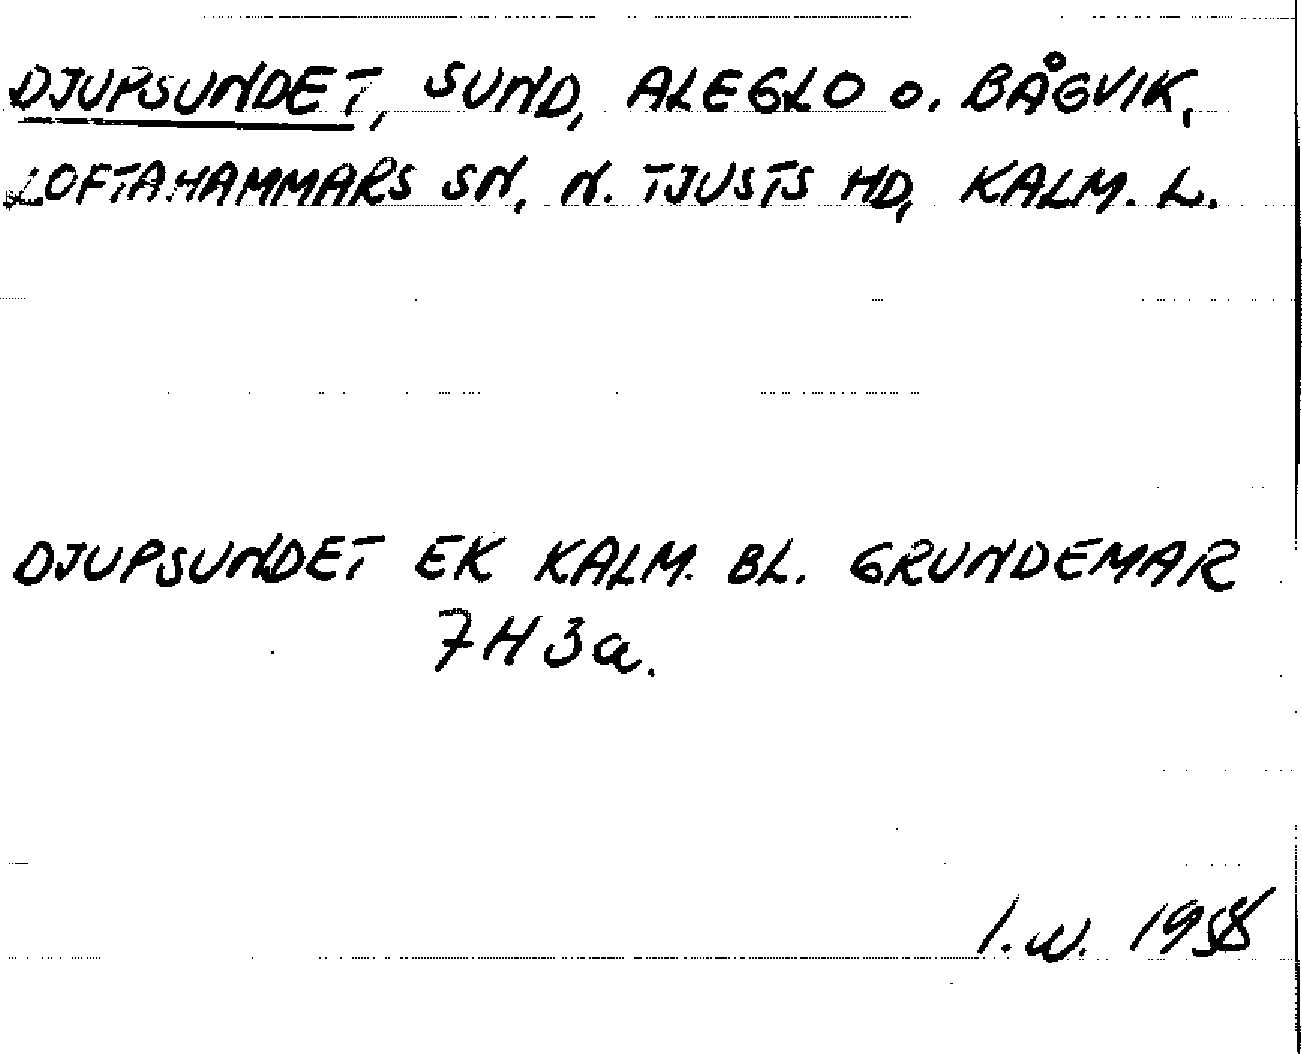 DJUPSUNDET, SUND, ALEGLO o. BÅGVIK,
LOFTAHAMMARS SN, N. TJUSTS HD, KALM. L.
DJUPSUNDET EK KALM. BL. GRUNDEMAR
7H3a.
I.W. 1958